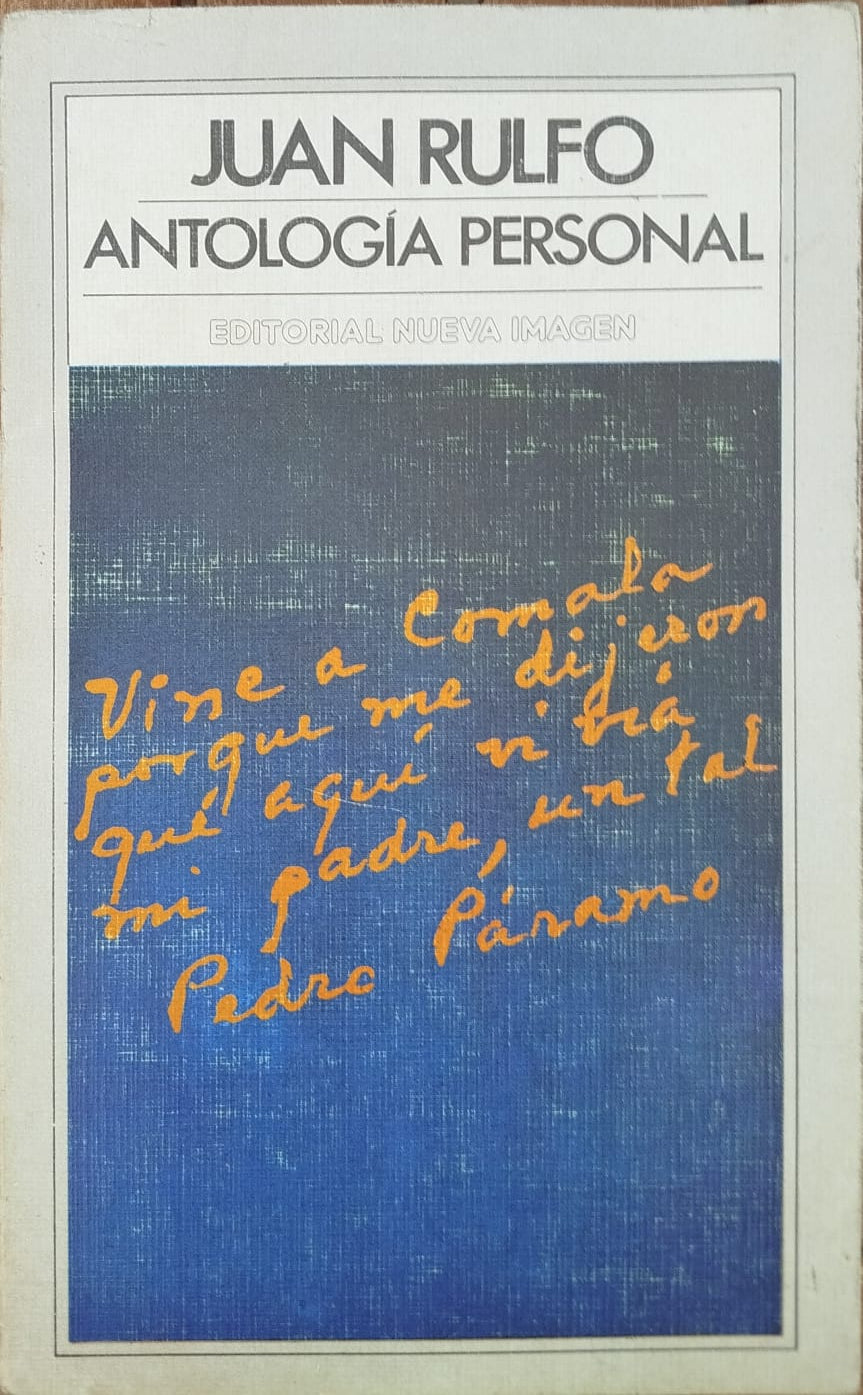 JUAN RULFO
ANTOLOGÍA PERSONAL
EDITORIAL NUEVA IMAGEN
Vine a Comala
porque me dijeron
qué aquí vivía
mi padre, un tal
Pedro Páramo